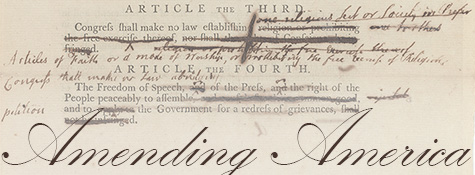 ARTICLE THE THIRD.
one religious sect or Society in Prefer
Congreſs shall make no law establiſhing religion or prohibiting
the free exercise thereof, nor shall the
fringed.
Articles of Faith or a mode of Worship, or prohibiting the free exercise of Religion,
ARTICLE THE FOURTH.
Congreſs shall make no law abridging
The Freedom of Speech, of the Preſs, and the right of the
People peaceably to aſſemble,
petition
and to the Government for a redreſs of grievances, shall
Amending America